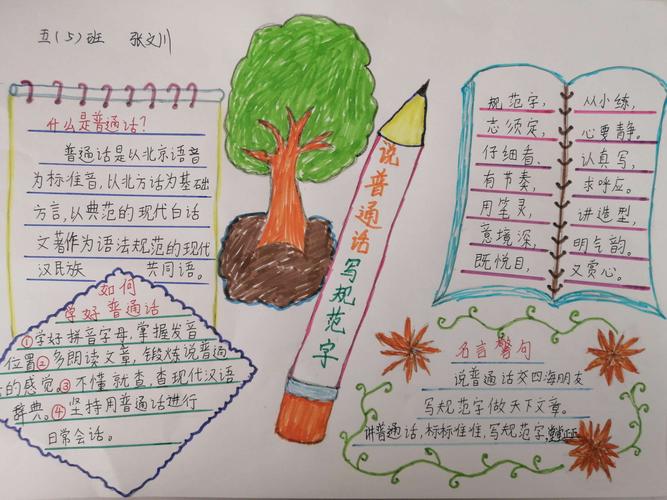 五(5)班 张文川
什么是普通话?
普通话是以北京语音
为标准音,以北方话为基础
方言,以典范的现代白话
文著作为语法规范的现代
汉民族 共同语。
如何
学好普通话
①学好拼音字母,掌握发音
位置②多朗读文章,锻炼说普通
的感觉。③不懂就查,查现代汉语
辞典。④坚持用普通话进行
日常会话。
说普通话写规范字
规范字,
志须定,
仔细看、
有节奏,
用笔灵,
意境深,
既悦目,
从小练,
心要静。
认真写,
求呼应。
讲造型,
明气韵。
又赏心。
名言警句
说普通话交四海朋友
写规范字做天下文章。
讲普通话,标标准准,写规范字,